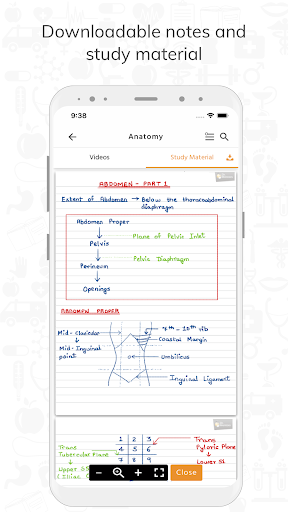 Downloadable notes and
study material
9:38
Anatomy
Videos
Study Material
ABDOMEN - PART 1
Extent of Abdomen → Below the thoracoabdominal
diaphragm
Abdomen Proper
Pelvis
Plane of Pelvic Inlet
Perineum
Pelvic Diaphragm
Openings
ABDOMEN PROPER
Mid-Clavicular
Mid-Inguinal
point
7th - 10th rib
Coastal Margin
Umbilicus
Inguinal Ligament
1 2 3
4 5 6
7 8 9
Trans
Tubercular Plane
Upper
(Iliac
Trans
Pyloric Plane
Lower
Close